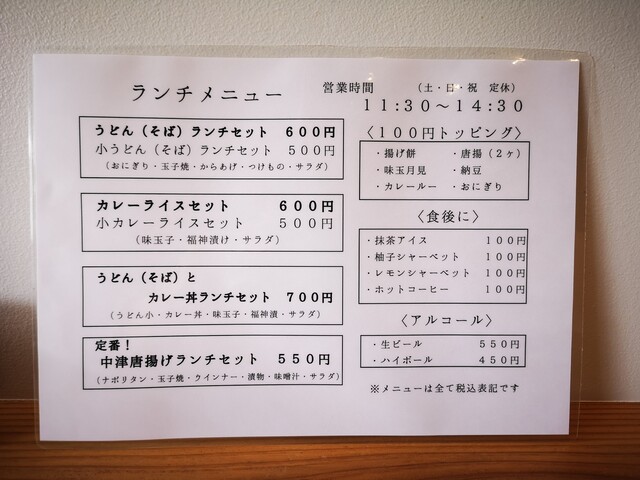 ランチメニュー
うどん（そば）ランチセット　６００円
小うどん（そば）ランチセット　５００円
（おにぎり・玉子焼・からあげ・つけもの・サラダ）
カレーライスセット　６００円
小カレーライスセット　５００円
（味玉子・福神漬け・サラダ）
うどん（そば）と
カレー丼ランチセット　７００円
（うどん小・カレー丼・味玉子・福神漬・サラダ）
定番！
中津唐揚げランチセット　５５０円
（ナポリタン・玉子焼・ウインナー・漬物・味噌汁・サラダ）
営業時間　（土・日・祝　定休）
１１:３０～１４:３０
〈１００円トッピング〉
・揚げ餅　・唐揚（２ヶ）
・味玉月見　・納豆
・カレールー　・おにぎり
〈食後に〉
・抹茶アイス　１００円
・柚子シャーベット　１００円
・レモンシャーベット　１００円
・ホットコーヒー　１００円
〈アルコール〉
・生ビール　５５０円
・ハイボール　４５０円
※メニューは全て税込表記です